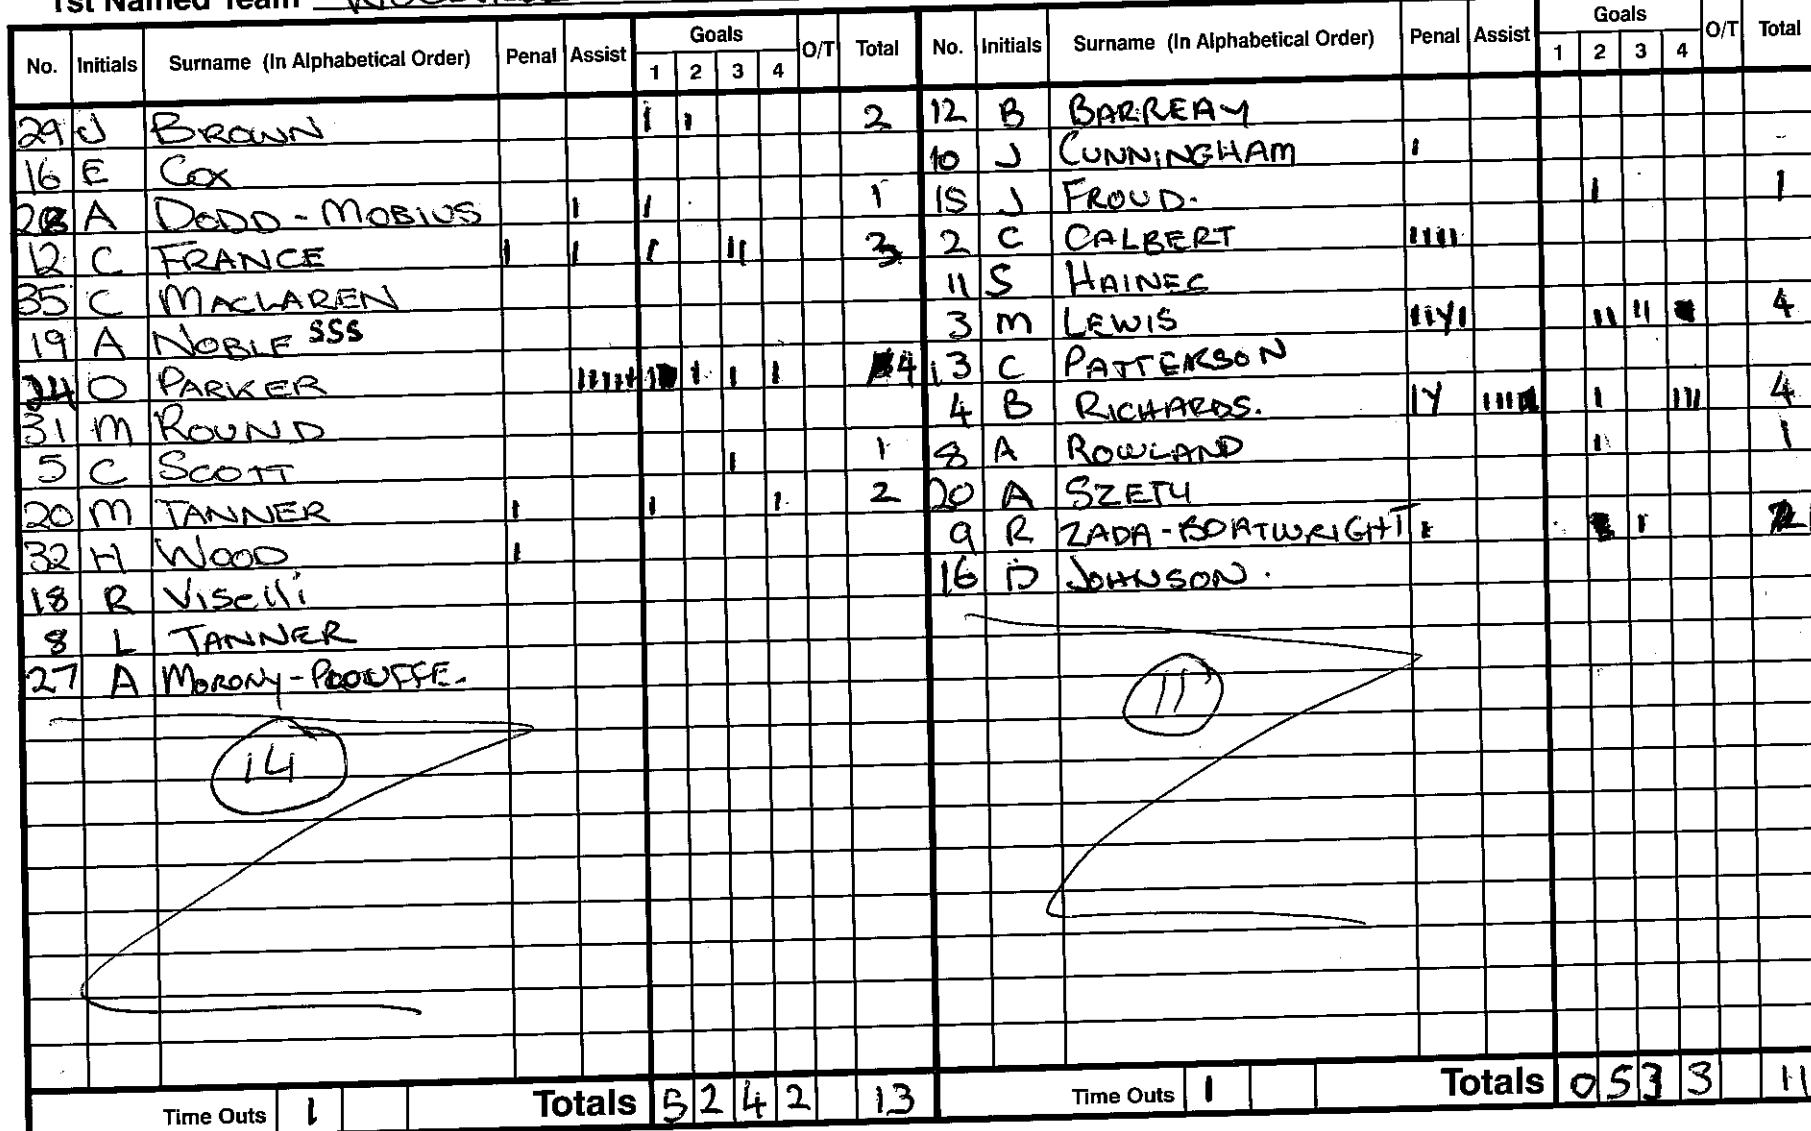 1st Named Team
No. Initials Surname (In Alphabetical Order) Penal Assist Goals 1 2 3 4 O/T Total
29 J BROWN I I 2
16 E COX
A DODD-MOBIUS I I 1
12 C FRANCE I I I II 3
35 C MACLAREN
19 A NOBLE SSS
24 O PARKER I I I 4
31 M ROUND
5 C SCOTT I 1
20 M TANNER I I I 2
32 H WOOD I
18 R Viselli
8 L TANNER
27 A
14
Time Outs 1 Totals 5 2 4 2 13
No. Initials Surname (In Alphabetical Order) Penal Assist Goals 1 2 3 4 O/T Total
12 B
10 J CUNNINGHAM I
15 J FROUD. I 1
2 C CALBERT IIII
11 S HAINES
3 M LEWIS IIYI II II 4
13 C PATTERSON
4 B RICHARDS. IY I III 4
8 A ROWLAND I 1
20 A
9 R ZADA-BOATWRIGHT I I
16 D JOHNSON.
11
Time Outs 1 Totals 0 5 3 3 11